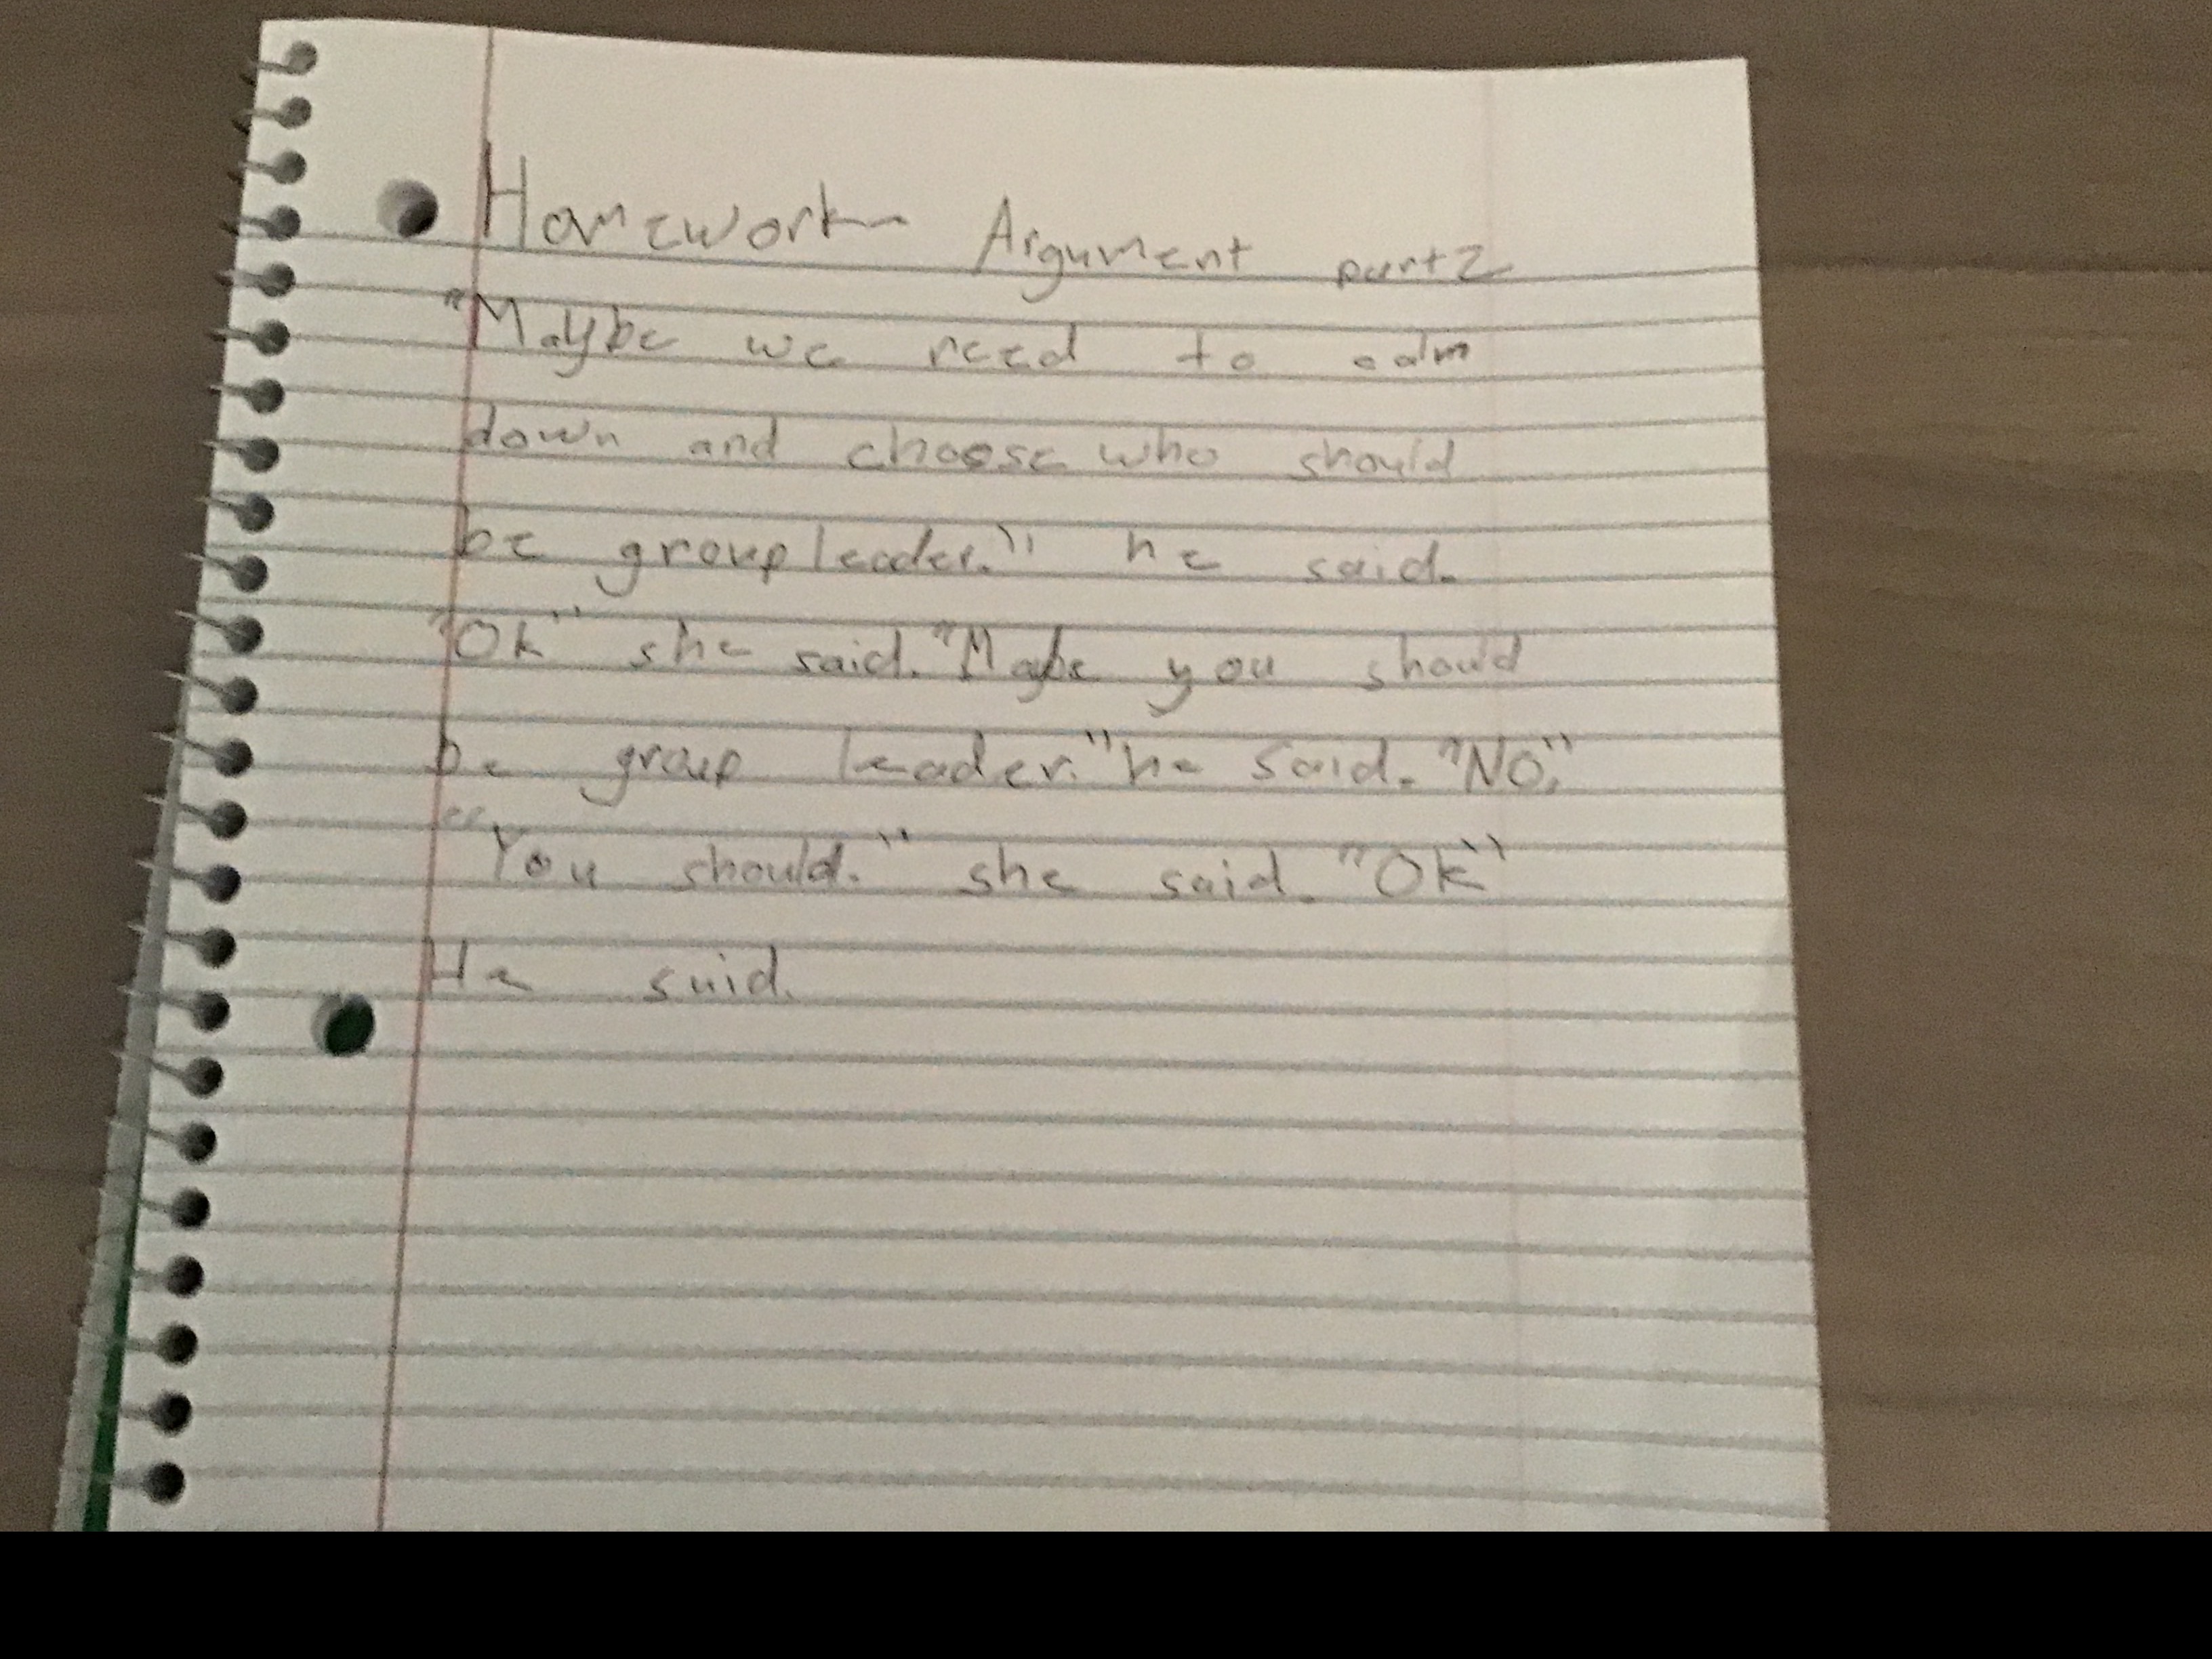 Homework Argument part 2
"Maybe we need to calm
down and choose who should
be group leader." he said.
"Ok" she said. "Maybe you should
be group leader." he said. "No,"
"You should." she said. "Ok"
He said.